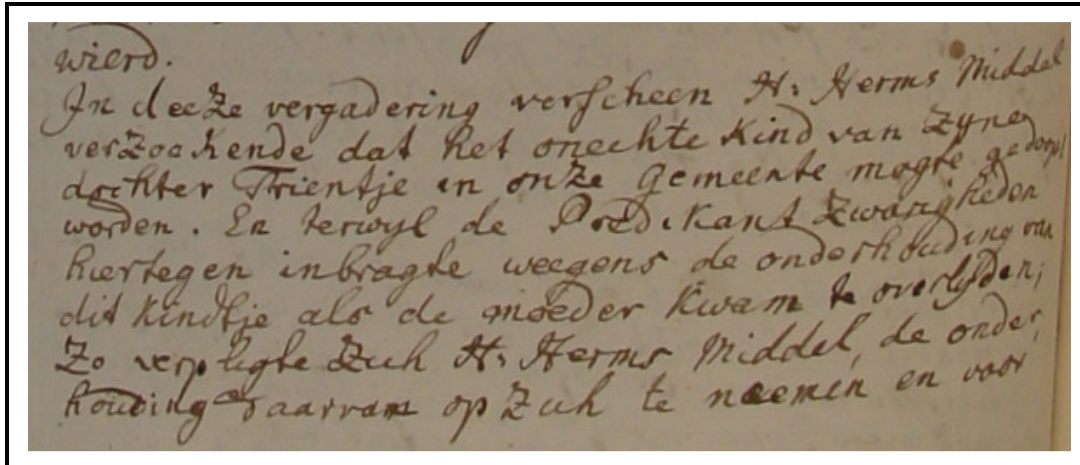 wierd.
In deeze vergadering verscheen H: Herms Middel
verzoekende dat het onechte Kind van Zyne
dochter Trientje in onze Gemeente mogte gedoopt
worden. En terwyl de Predikant Zwarigheden
hiertegen inbragte weegens de onderhouding van
dit Kindtje als de moeder Kwam te overlyden;
Zo verpligte Zich H: Herms Middel, de onder,
houding daarvan op Zich te neemen en voor